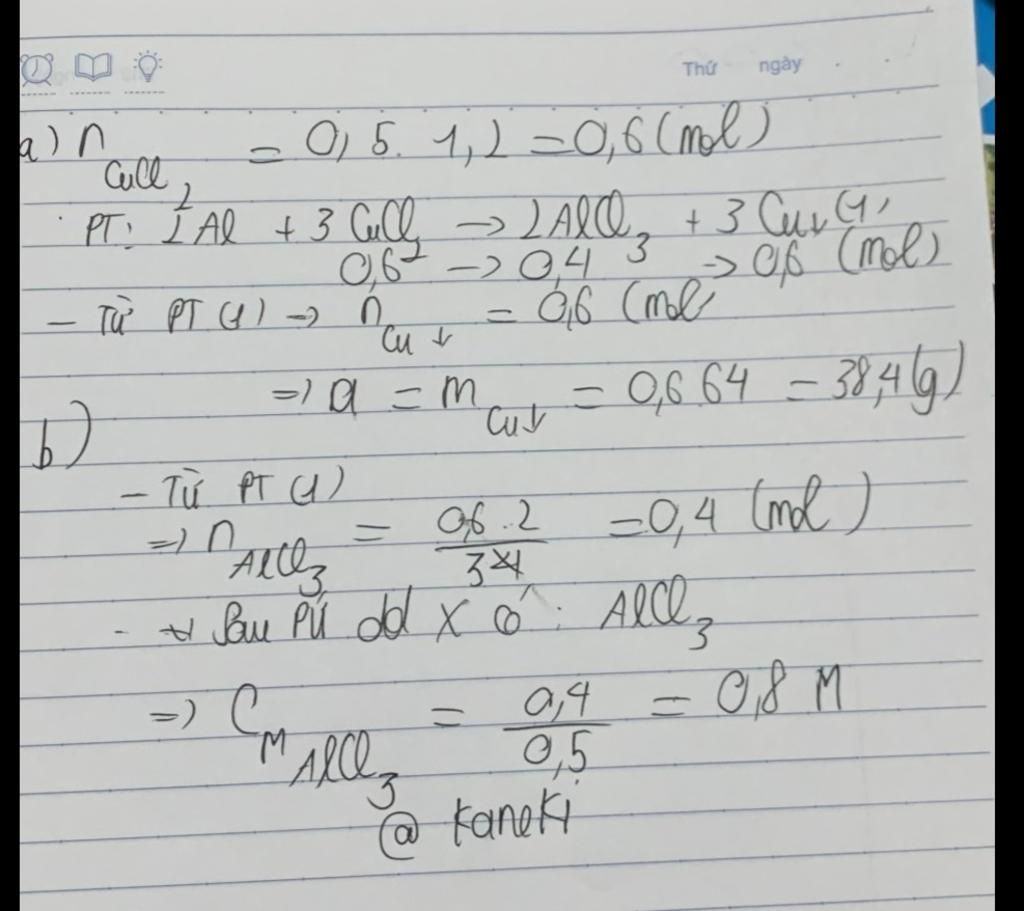 Thứ ngày
a) n CuCl₂ = 0,5. 1,2 = 0,6 (mol)
PT: 2Al + 3CuCl₂ → 2AlCl₃ + 3Cu↓ (1)
0,6 → 0,4 → 0,6 (mol)
- Từ PT (1) → n Cu↓ = 0,6 (mol)
=> a = m Cu↓ = 0,6 64 = 38,4 (g)
b)
- Từ PT (1)
=> n AlCl₃ = 0,6 . 2 / 3 = 0,4 (mol)
- Sau PƯ dd X có : AlCl₃
=> C M AlCl₃ = 0,4 / 0,5 = 0,8 M
@ kaneki